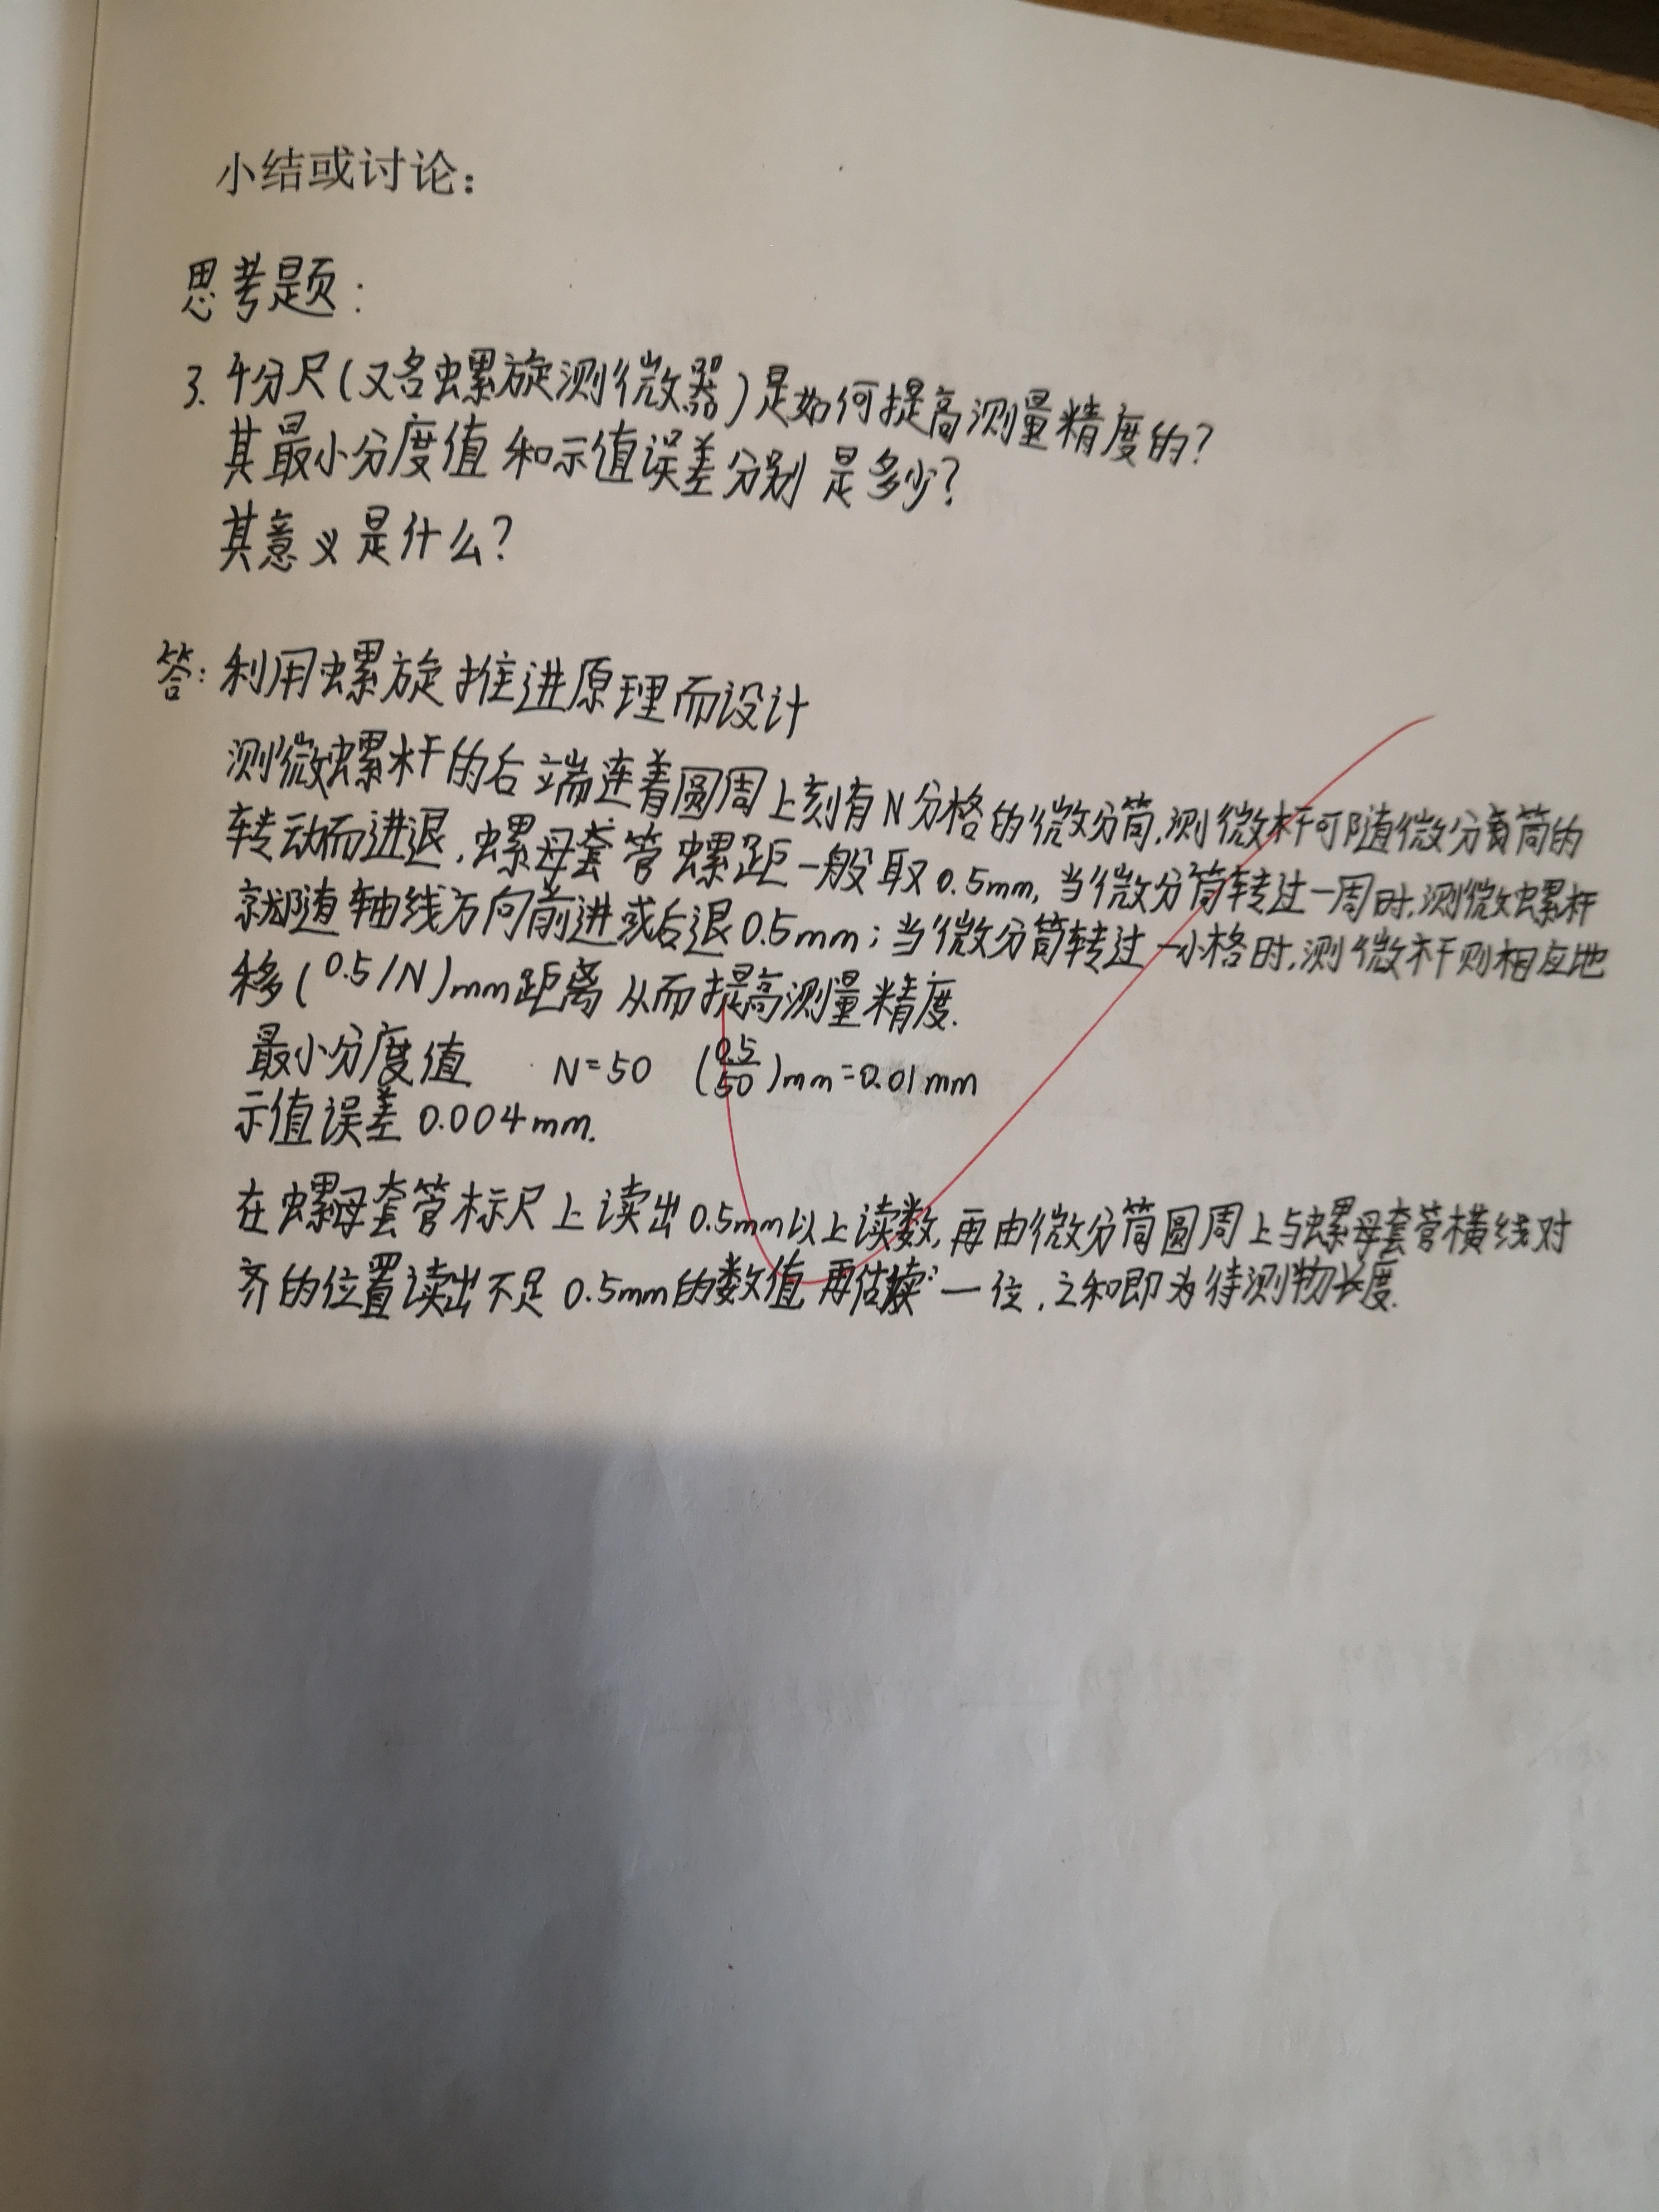 小结或讨论：
思考题：
3. 千分尺(又名螺旋测微器)是如何提高测量精度的?
其最小分度值和示值误差分别是多少?
其意义是什么?
答：利用螺旋推进原理而设计
测微螺杆的后端连着圆周上刻有N分格的微分筒,测微杆可随微分筒的
转动而进退,螺母套管螺距一般取0.5mm,当微分筒转过一周时,测微螺杆
就随轴线方向前进或后退0.5mm;当微分筒转过一小格时,测微杆则相应地
移(0.5/N)mm距离从而提高测量精度.
最小分度值 N=50 (0.5/50)mm=0.01mm
示值误差0.004mm.
在螺母套管标尺上读出0.5mm以上读数,再由微分筒圆周上与螺母套管横线对
齐的位置读出不足0.5mm的数值 再估读一位,之和即为待测物长度.